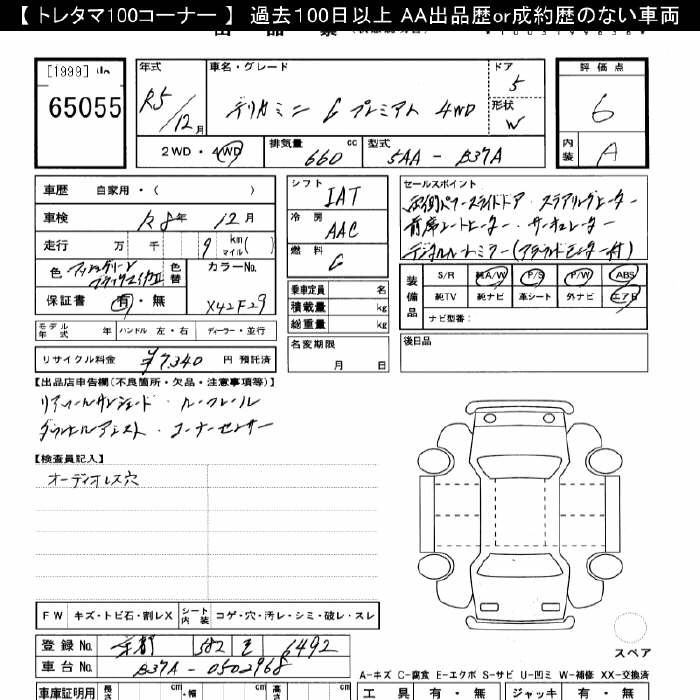 【 トレタマ100コーナー 】 過去100日以上 AA出品歴or成約歴のない車両
[1999]
65055
年式
R5/12月
車名・グレード
デリカミニ G プレミアム 4WD
ドア
5
形状
W
評価点
6
内装
A
2WD・4WD
排気量
660 cc
型式
5AA - B37A
車歴 自家用・( )
車検 R8年 12月
走行 万 千 9 km マイル( )
色
色替
カラーNo.
X42F29
保証書 有・無
モデル年式 年 ハンドル 左・右 ディーラー・並行
リサイクル料金 ¥7,340 円 預託済
シフト
IAT
冷房
AAC
燃料
G
乗車定員 名
積載量 kg
総重量 kg
名変期限
月 日
セールスポイント
両側パワースライドドア・ステアリングヒーター
前席シートヒーター・サーキュレーター
デジタルルームミラー(アラウンドモニター付)
装備品
S/R 純A/W P/S P/W ABS
純TV 純ナビ 革シート 外ナビ エアB
ナビ型番:
後日品
【出品店申告欄(不良箇所・欠品・注意事項等)】
リアソーラサンシェード・ルーフレール
ダウンヒルアシスト・コーナーセンサー
【検査員記入】
オーディオレス穴
FW キズ・トビ石・割レX シート内装 コゲ・穴・汚レ・シミ・破レ・スレ
登録No. 京都 582 え 6492
車台No. B37A - 0502968
スペア
A-キズ C-腐食 E-エクボ S-サビ U-凹ミ W-補修 XX-交換済
車庫証明用 長さ cm ・幅 cm 高さ cm
工具 有・無 ジャッキ 有・無